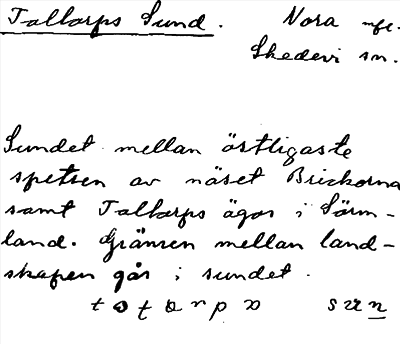 Taltorps Sund. Nora mfl.
Skedevi sn.
Sundet mellan östligaste
spetsen av näset Brickorna
samt Taltorps ägor i Sörm-
land. Gränsen mellan land-
skapen går i sundet.